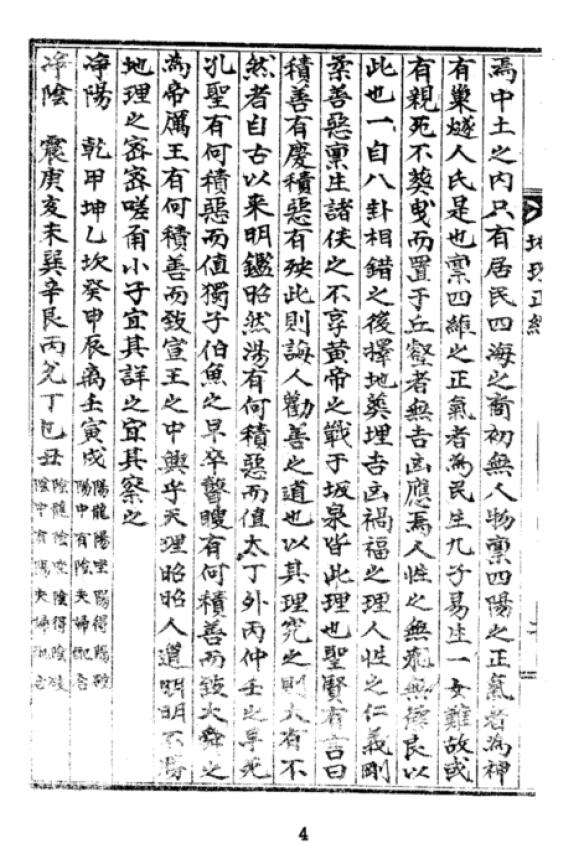 焉中土之內只有居民四海之商初無人物稟四陽之正氣者為神
有巢燧人氏是也稟四維之正氣者為民生九子易生一女難故或
有親死不葬曳而置于丘壑者無吉凶應焉人性之無死無德良以
此也一自八卦相錯之後擇地奠埋吉凶禍福之理人性之仁義剛
柔善惡稟生諸侯之不享黃帝之戰于坂泉皆此理也聖賢有言曰
積善有慶積惡有殃此則誨人勸善之道也以其理究之則大有不
然者自古以來明鑑昭然湯有何積惡而值太丁外丙仲壬之早死
孔聖有何積惡而值獨子伯魚之早卒瞽瞍有何積善而致大舜之
為帝厲王有何積善而致宣王之中興乎天理昭昭人道明明不
地理之密密嗟爾小子宜其詳之宜其察之
净陽 乾甲坤乙坎癸申辰离壬寅戌 陽龍陽坐陽得陽破
陽中有陰夫婦配合
净陰 震庚亥未巽辛艮丙兌丁巳丑 陰龍陰坐陰得陰破
陰中有陽夫婦配合
地理正經
4